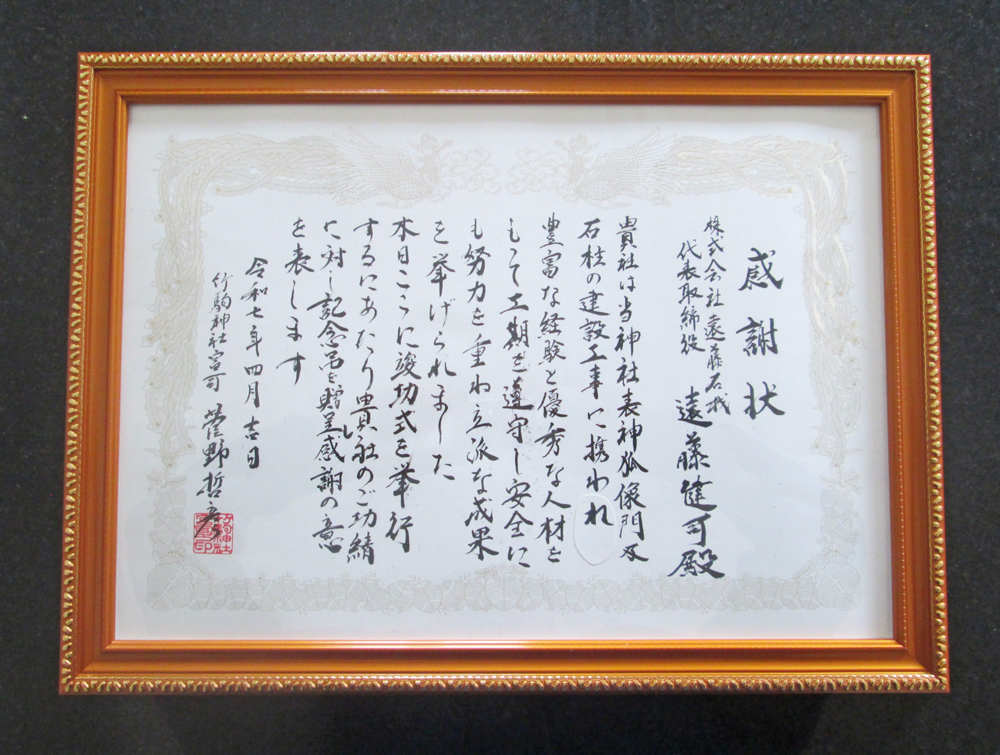 感謝状
株式会社遠藤石材
代表取締役 遠藤健司殿
貴社は当神社表神狐像門及
石柱の建設工事に携われ
豊富な経験と優秀な人材を
もって工期を遵守し安全に
も努力を重ね立派な成果
を挙げられました
本日ここに竣功式を挙行
するにあたり貴社のご功績
に対し記念品を贈呈し感謝の意
を表します
令和七年四月吉日
竹駒神社宮司 菅野哲